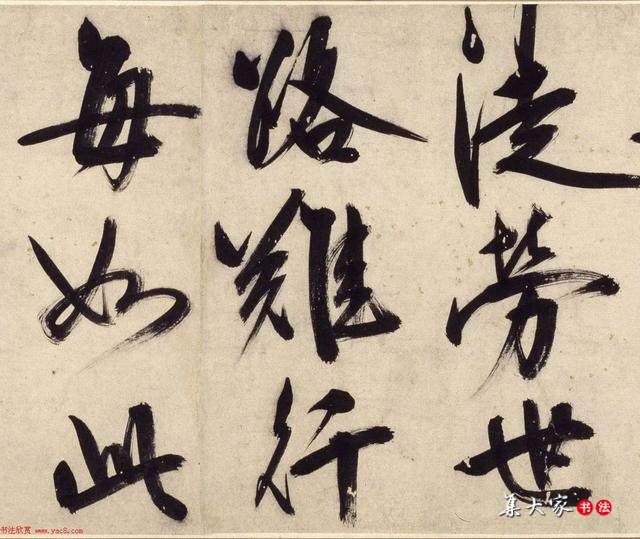 徒勞世
路難行
每如此
集大家书法
书法欣赏 www.yac8.com